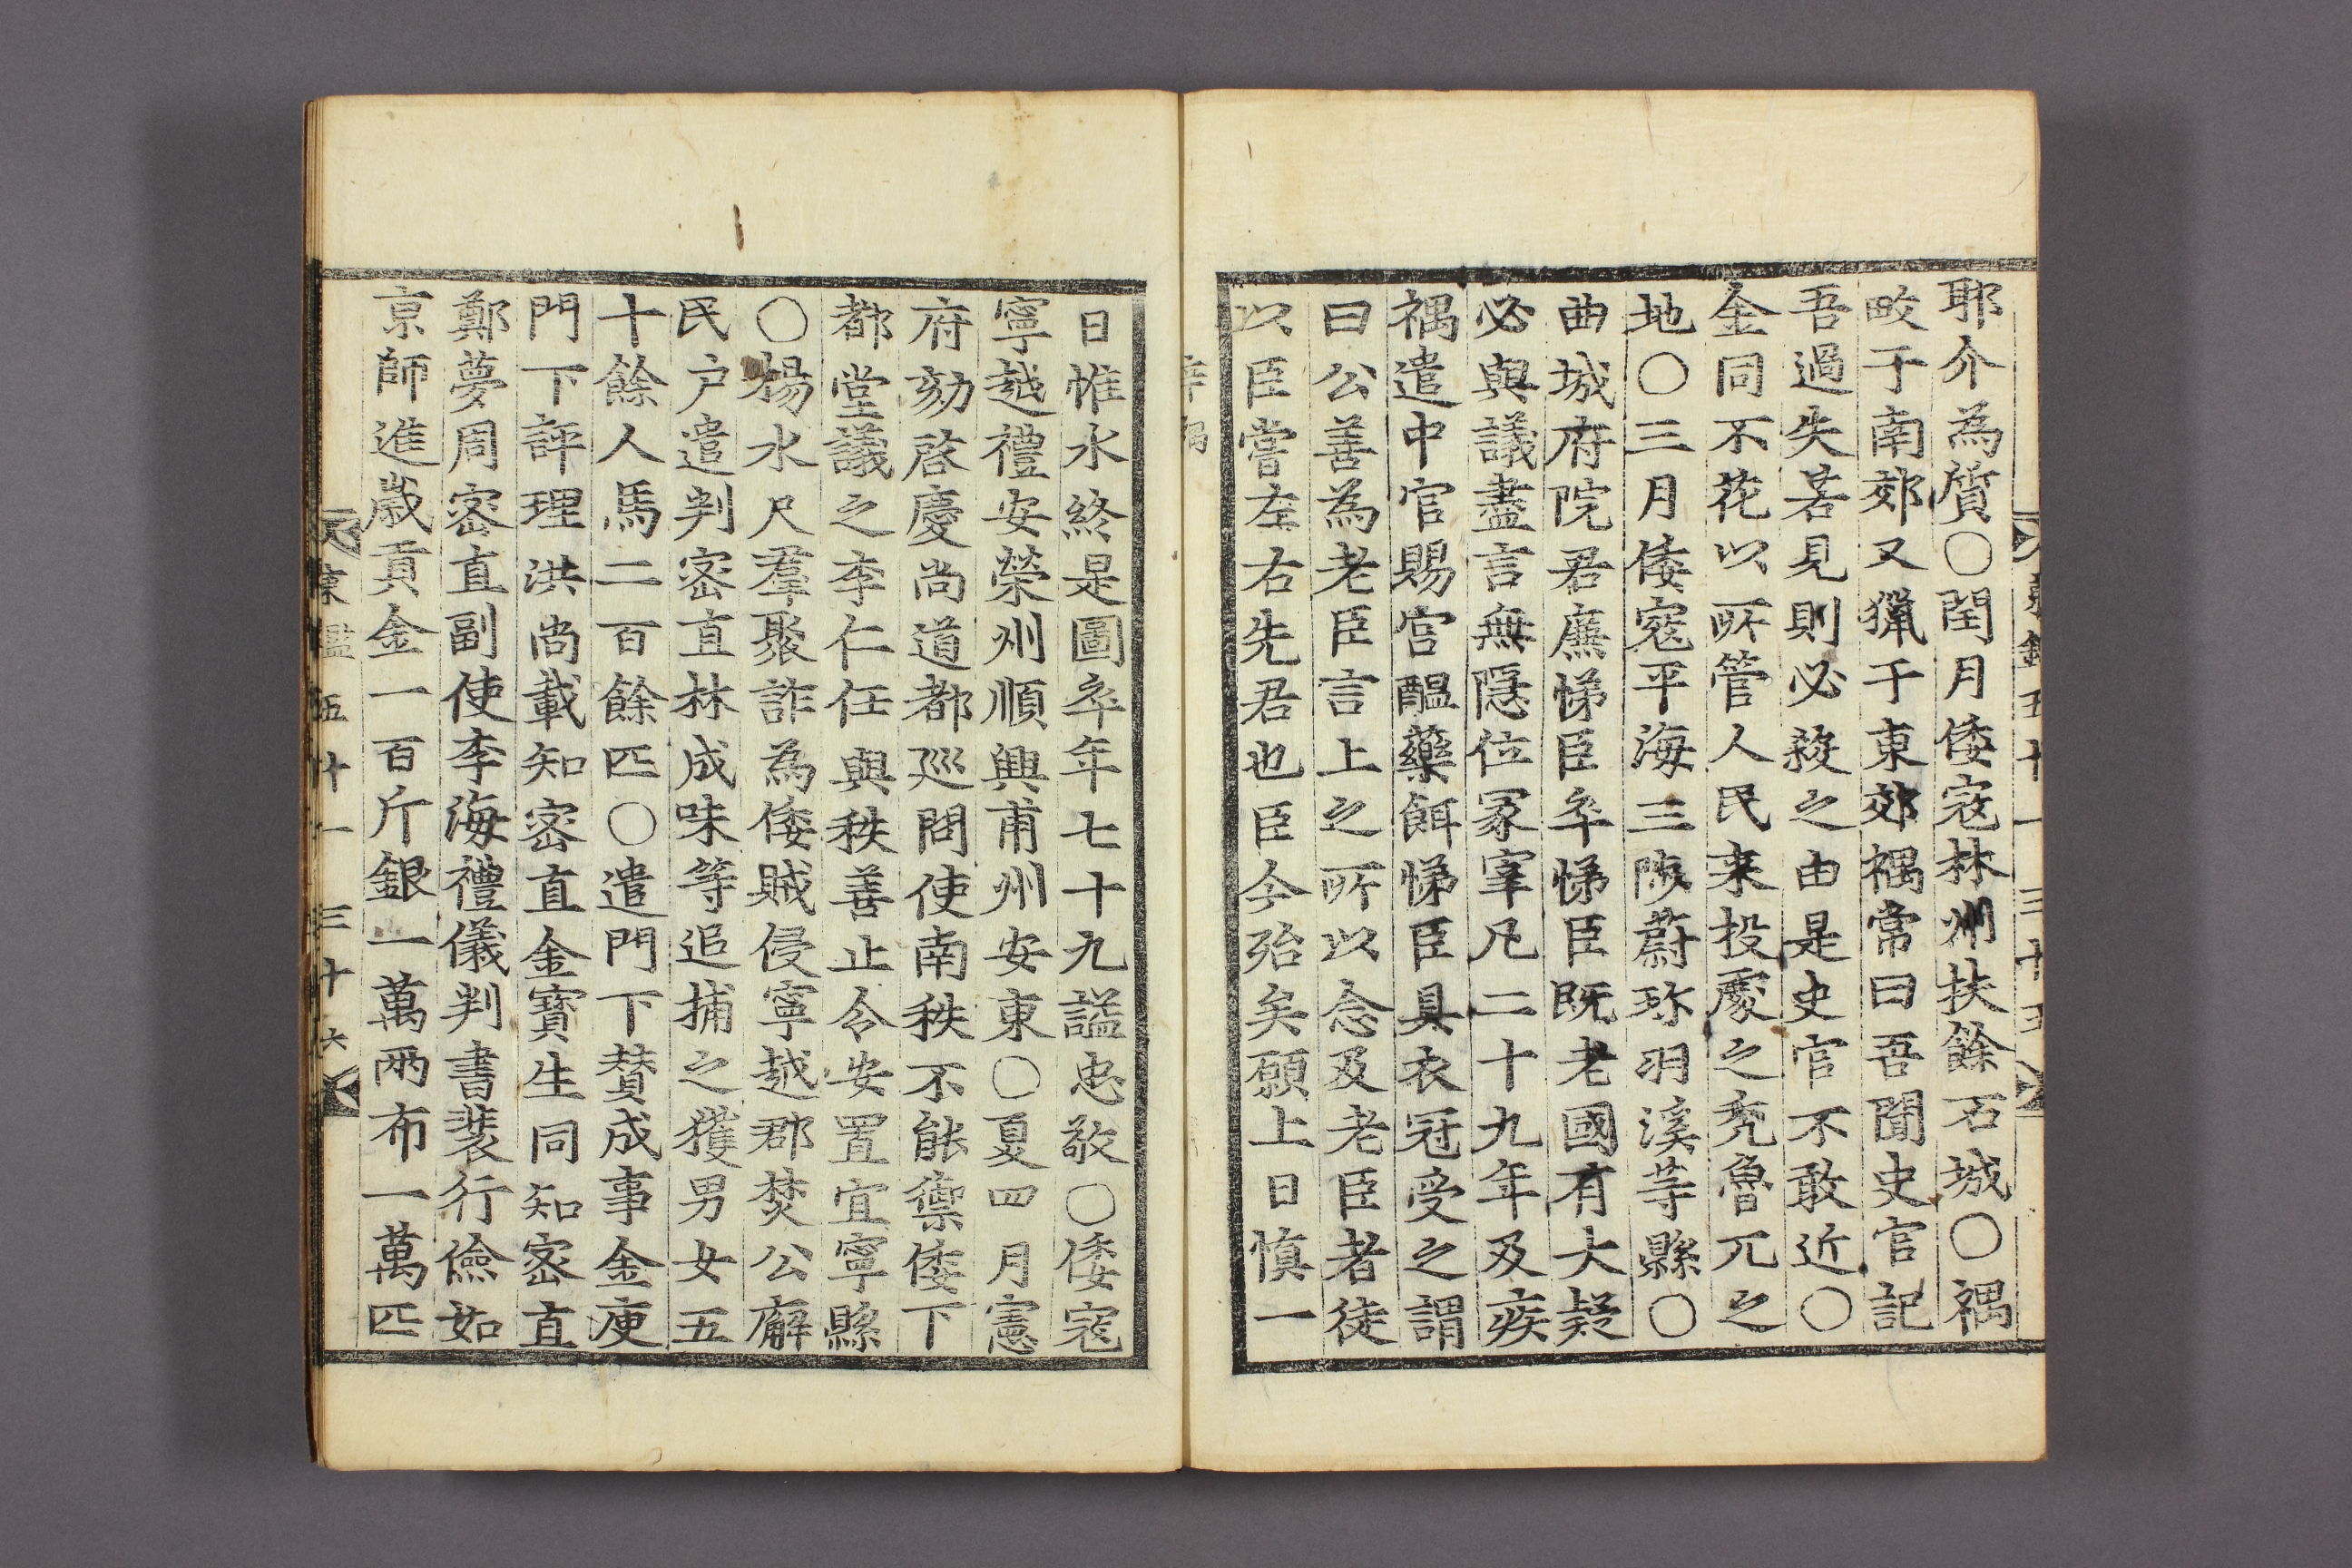 耶介為質○閏月倭寇林州扶餘石城○禑
畋于南郊又獵于東郊禑常曰吾聞史官記
吾過失若見則必殺之由是史官不敢近○
金同不花以所管人民来投處之禿魯兀之
地○三月倭寇平海三陟蔚珍羽溪等縣○
曲城府院君廉悌臣卒悌臣旣老國有大疑
必與議盡言無隱位冢宰凡二十九年及疾
禑遣中官賜宮醞藥餌悌臣具衣冠受之謂
曰公善為老臣言上之所以念及老臣者徒
以臣嘗左右先君也臣今殆矣願上日慎一
辛禑
日惟水終是圖卒年七十九謚忠敬○倭寇
寧越禮安榮州順興甫州安東○夏四月憲
府劾啓慶尚道都廵問使南秩不能禦倭下
都堂議之李仁任與秩善止令安置宜寧縣
○楊水尺羣聚詐為倭賊侵寧越郡焚公廨
民户遣判密直林成味等追捕之獲男女五
十餘人馬二百餘匹○遣門下賛成事金庾
門下評理洪尚載知密直金寶生同知密直
鄭夢周密直副使李海禮儀判書裴行儉如
京師進歲貢金一百斤銀一萬兩布一萬匹
東鑑五十一 三十六